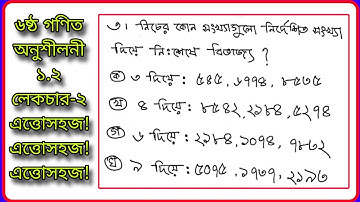 ৬ষ্ঠ গণিত
অনুশীলনী
১.২
লেকচার-২
এত্তোসহজ!
এত্তোসহজ!
এত্তোসহজ!
৩। নিচের কোন সংখ্যাগুলো নির্দেশিত সংখ্যা
দিয়ে নিঃশেষে বিভাজ্য ?
ক ৩ দিয়ে : ৫৪৫, ৬৭৭৪, ৮৫৩৫
খ ৪ দিয়ে : ৮৫৪২, ২১৮৪, ৫২৭৪
গ ৬ দিয়ে : ২১৮৪, ১০৭৪, ৭৮৩২
ঘ ৯ দিয়ে : ৫০৭৫, ১৭৩৭, ২১৯৩